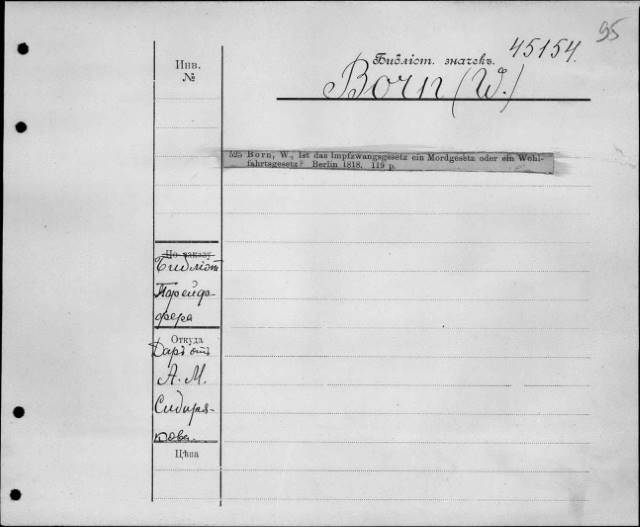 95
Инв.
№
Библіот. значекъ. 45154.
Born (W.)
525 Born, W., Ist das Impfzwangsgesetz ein Mordgesetz oder ein Wohl-
fahrtsgesetz? Berlin 1818. 119 p.
По заказу
Библіот
фера
Откуда
Даръ отъ
А. М.
Сибиря-
кова.
Цѣна